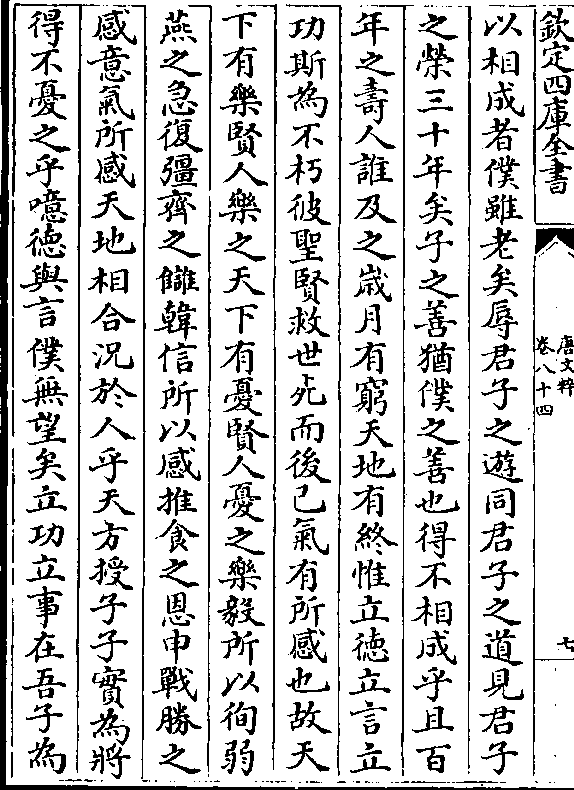 欽定四庫全書
唐文粹
卷八十四
七
以相成者僕雖老矣辱君子之遊同君子之道見君子
之榮三十年矣子之善猶僕之善也得不相成乎且百
年之壽人誰及之嵗月有窮天地有終惟立徳立言立
功斯為不朽彼聖賢救世死而後已氣有所感也故天
下有樂賢人樂之天下有憂賢人憂之樂毅所以徇弱
燕之急復彊齊之讎韓信所以感推食之恩申戰勝之
感意氣所感天地相合況於人乎天方授子子實為將
得不憂之乎噫德與言僕無望矣立功立事在吾子為